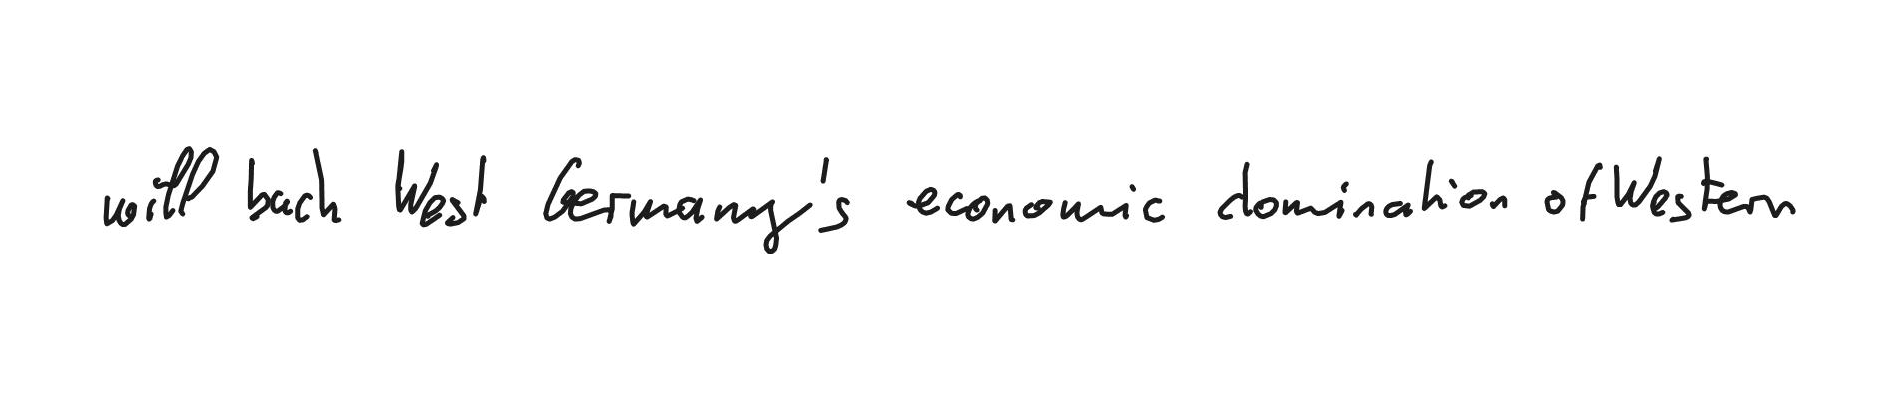 will back West Germany's economic domination of Western